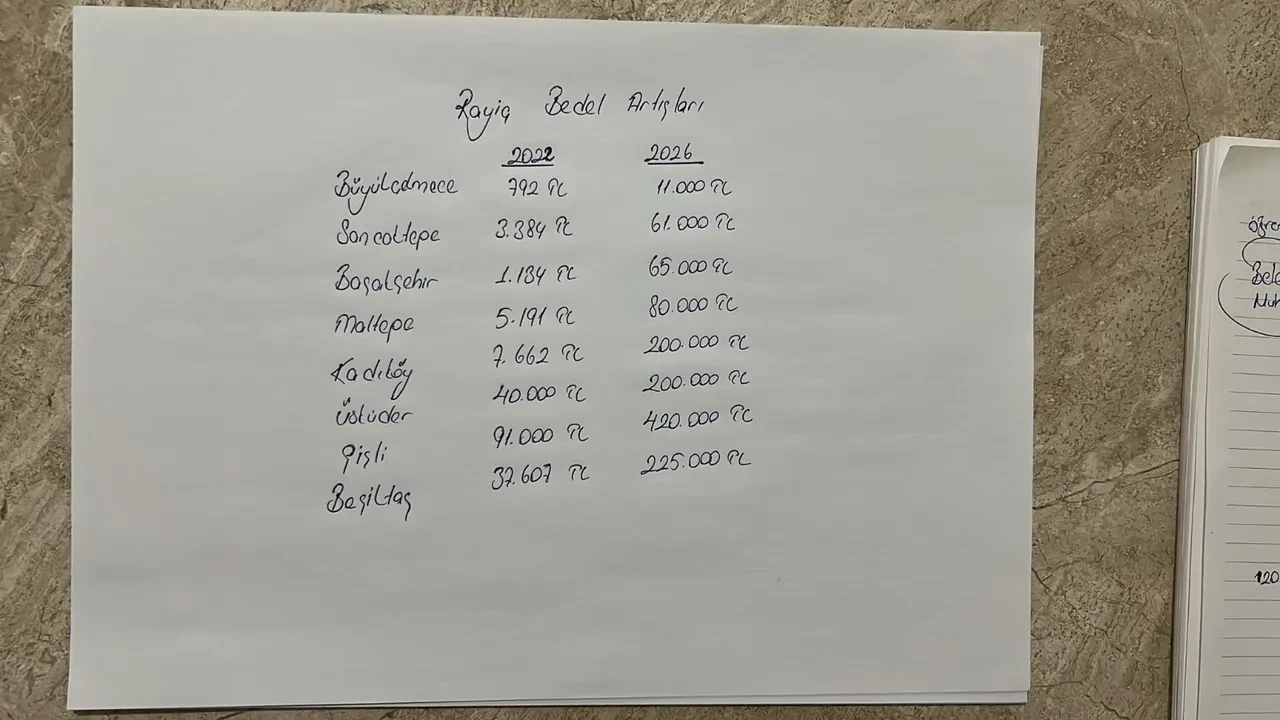 Rayiç Bedel Artışları
2022 2026
Büyükçekmece 792 TL 11.000 TL
Sancaktepe 3.384 TL 61.000 TL
Başakşehir 1.134 TL 65.000 TL
Maltepe 5.191 TL 80.000 TL
Kadıköy 7.662 TL 200.000 TL
Üsküdar 40.000 TL 200.000 TL
Şişli 91.000 TL 420.000 TL
Beşiktaş 37.607 TL 225.000 TL
120